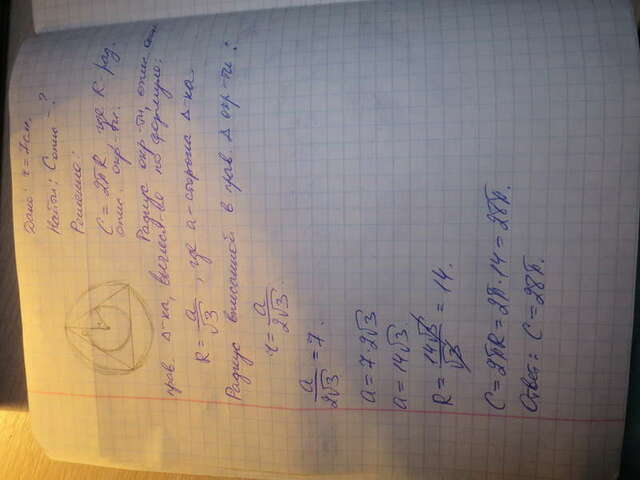 Дано: r = 7см.
Найти: Сопис - ?
Решение:
C = 2πR где R - рад.
опис. окр-ти.
Радиус окр-ти, опис. около
прав. Δ-ка, вычисл-ся по формуле:
R = a/√3, где a - сторона Δ-ка
Радиус вписанной в прав. Δ окр-ти:
r = a/2√3
a/2√3 = 7.
a = 7·2√3
a = 14√3.
R = 14√3/√3 = 14.
C = 2πR = 2π·14 = 28π.
Ответ: C = 28π.